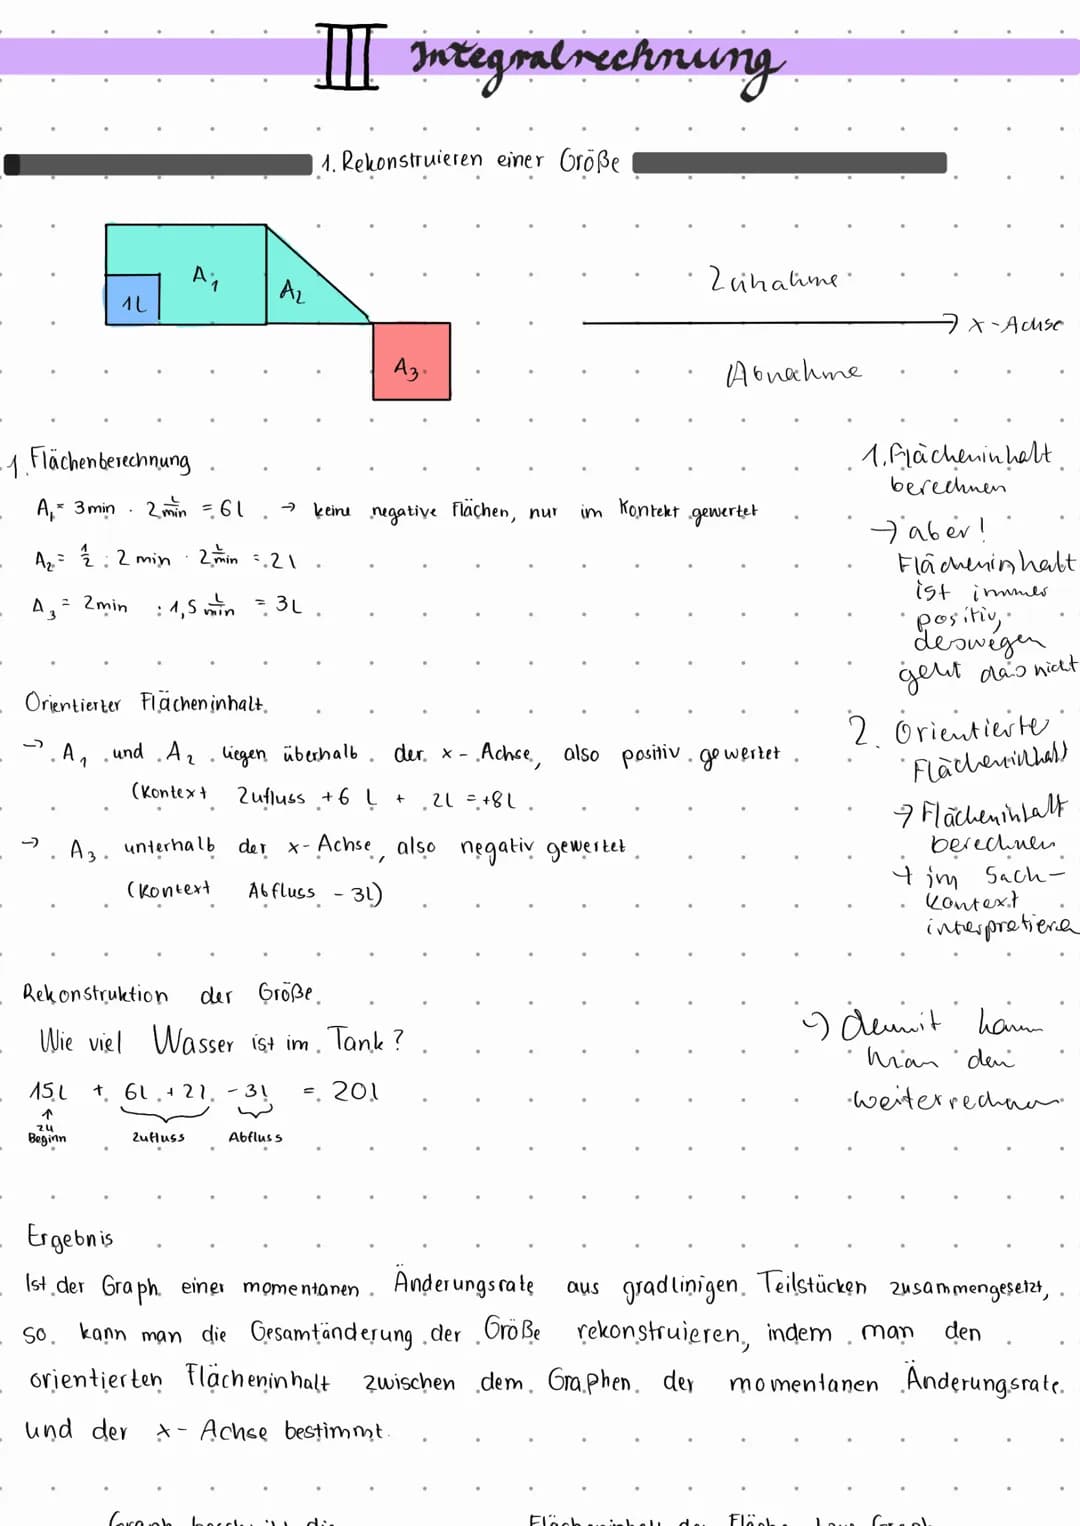 III Integralrechnung
1. Rekonstruieren einer Größe
A1
A2
1L
A3
Zunahme
x-Achse
Abnahme
1. Flächenberechnung
A1 = 3min · 2 L/min = 6l → keine negative Flächen, nur im Kontekt gewertet
A2 = 1/2 · 2 min · 2 L/min = 2l
A3 = 2min · 1,5 L/min = 3L
Orientierter Flächeninhalt
→ A1 und A2 liegen überhalb der x-Achse, also positiv gewertet
(Kontext Zufluss +6 L + 2L = +8L
→ A3 unterhalb der x-Achse, also negativ gewertet
(Kontext Abfluss - 3L)
Rekonstruktion der Größe
Wie viel Wasser ist im Tank?
15L + 6L + 2l - 3l = 20l
↑
zu
Beginn Zufluss Abfluss
1. Flächeninhalt
berechnen
→ aber!
Flächeninhalt
ist immer
positiv,
deswegen
geht das nicht
2. Orientierte
Flächeninhalt
→ Flächeninhalt
berechnen
+ im Sach-
kontext
interpretieren
→ damit kann
man den
weiterrechnen
Ergebnis
Ist der Graph einer momentanen Änderungsrate aus gradlinigen Teilstücken zusammengesetzt,
so kann man die Gesamtänderung der Größe rekonstruieren, indem man den
orientierten Flächeninhalt zwischen dem Graphen der momentanen Änderungsrate
und der x-Achse bestimmt.